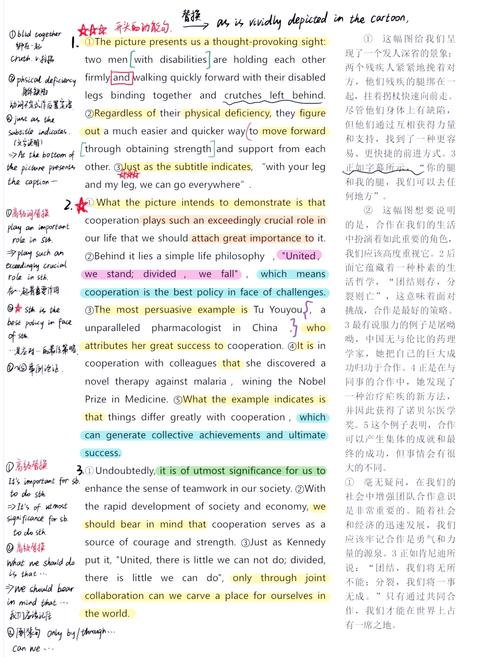 替换
→ as is vividly depicted in the cartoon,
☆☆☆ 开头的好句.
1. ①The picture presents us a thought-provoking sight:
two men [with disabilities] are holding each other
firmly and walking quickly forward with their disabled
legs binding together and crutches left behind.
②Regardless of their physical deficiency, they figure
out a much easier and quicker way (to move forward
[through obtaining strength] and support from each
other. ③Just as the subtitle indicates, "with your leg
and my leg, we can go everywhere".
2. ①What the picture intends to demonstrate is that
cooperation plays such an exceedingly crucial role in
our life that we should attach great importance to it.
②Behind it lies a simple life philosophy, "United,
we stand; divided, we fall", which means
cooperation is the best policy in face of challenges.
③The most persuasive example is Tu Youyou, a
unparalleled pharmacologist in China, who
attributes her great success to cooperation. ④It is in
cooperation with colleagues that she discovered a
novel therapy against malaria, wining the Nobel
Prize in Medicine. ⑤What the example indicates is
that things differ greatly with cooperation, which
can generate collective achievements and ultimate
success.
3. ①Undoubtedly, it is of utmost significance for us to
enhance the sense of teamwork in our society. ②With
the rapid development of society and economy, we
should bear in mind that cooperation serves as a
source of courage and strength. ③Just as Kennedy
put it, "United, there is little we can not do; divided,
there is little we can do", only through joint
collaboration can we carve a place for ourselves in
the world.
①bind together
绑在一起
crutch n.拐杖
②physical deficiency
身体缺陷
③just as the
subtitle indicates.
(文字说明)
⇒As the bottom of
the picture presents
the caption—
①高级词替换
play an important
role in sth.
⇒play such an
exceedingly crucial
role in sth.
②☆ sth is the
best policy in face
of sth.
①高级替换
It's important for sb.
to do sth
⇒It's of utmost
significance for sb.
to do sth
②高级替换
what we should do
is that ...
⇒We should bear
in mind that ...
③倒装句 only by/through...
can we ...
① 这幅图给我们呈
现了一个发人深省的景象:
两个残疾人紧紧地挽着对
方,他们残疾的腿绑在一
起,拄着拐杖快速向前走。
尽管他们身体上有缺陷,
但他们通过互相获得力量
和支持,找到了一种更容
易、更快捷的前进方式。3
正如字幕所示,"你的腿
和我的腿,我们可以去任
何地方"。
② 这幅图想要说明
的是,合作在我们的生活
中扮演着如此重要的角色,
我们应该高度重视它。2后
面它蕴藏着一种朴素的生
活哲学,"团结则存,分
裂则亡",这意味着面对
挑战,合作是最好的策略。
3最有说服力的例子是屠呦
呦,中国无与伦比的药理
学家,她把自己的巨大成
功归功于合作。4正是在与
同事的合作中,她发现了
一种治疗疟疾的新方法,
并因此获得了诺贝尔医学
奖。5这个例子表明,合作
可以产生集体的成就和最
终的成功,但事情会有很
大的不同。
① 毫无疑问,在我们的
社会中增强团队合作意识
是非常重要的。随着社会
和经济的迅速发展,我们
应该牢记合作是勇气和力
量的源泉。3正如肯尼迪所
说:"团结,我们将无所
不能;分裂,我们将一事
无成。"只有通过共同合
作,我们才能在世界上占
有一席之地。